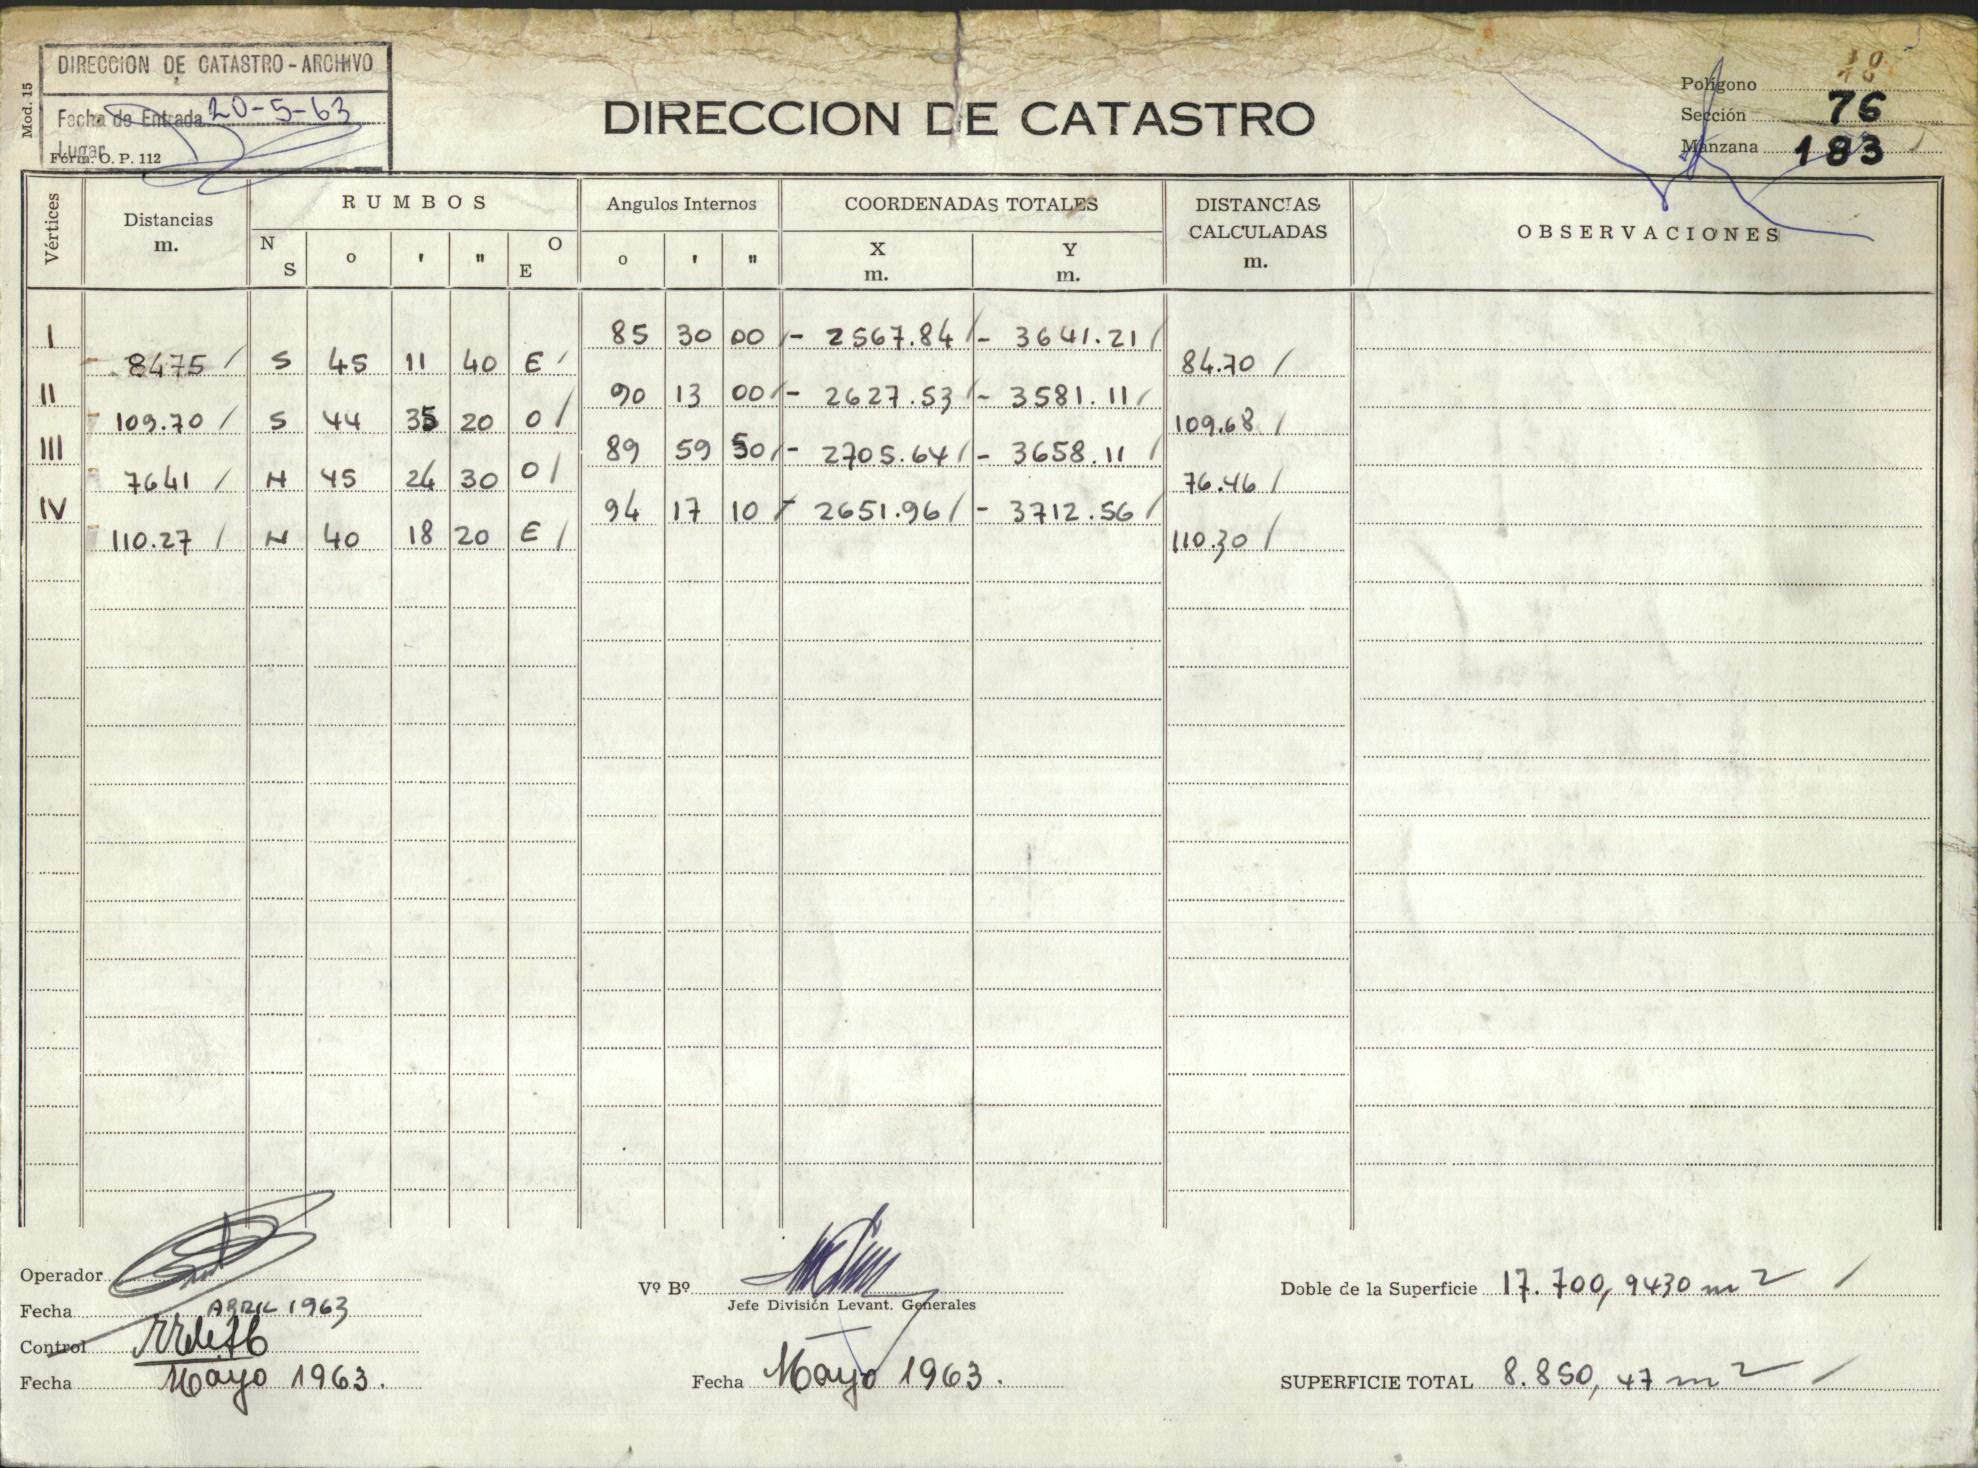 DIRECCION DE CATASTRO - ARCHIVO
Fecha de Entrada 20-5-63
Lugar
Mod. 15
Form. O. P. 112
DIRECCION DE CATASTRO
Polígono
Sección 76
Manzana 183
Vértices
Distancias
m.
RUMBOS
N S
o ' "
O E
Angulos Internos
o ' "
COORDENADAS TOTALES
X
m.
Y
m.
DISTANCIAS
CALCULADAS
m.
OBSERVACIONES
I 85 30 00 - 2567.84 - 3641.21
8475 S 45 11 40 E 84.70
II 90 13 00 - 2627.53 - 3581.11
109.70 S 44 35 20 O 109.68
III 89 59 50 - 2705.64 - 3658.11
7641 N 45 24 30 O 76.46
IV 94 17 10 - 2651.96 - 3712.56
110.27 N 40 18 20 E 110.30
Operador
Fecha ABRIL 1963
Control
Fecha Mayo 1963.
Vº Bº
Jefe División Levant. Generales
Fecha Mayo 1963.
Doble de la Superficie 17.700,9430 m2
SUPERFICIE TOTAL 8.850,47 m2